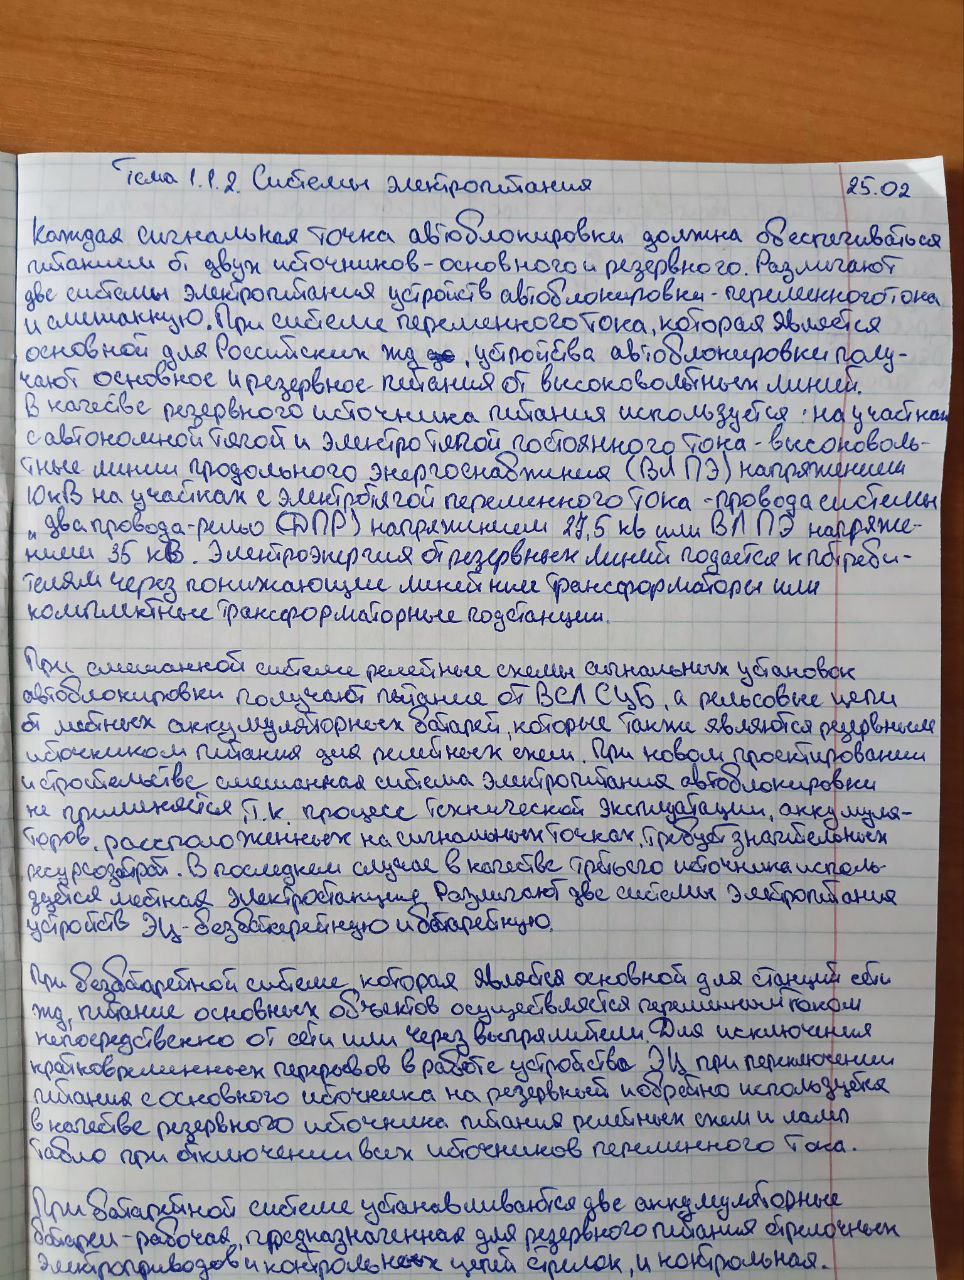 Тема 1.1.2. Системы электропитания 25.02
Каждая сигнальная точка автоблокировки должна обеспечиваться
питанием от двух источников - основного и резервного. Различают
две системы электропитания устройств автоблокировки - переменного тока
и смешанную. При системе переменного тока, которая является
основной для Российских жд, устройства автоблокировки полу-
чают основное и резервное питания от высоковольтных линий.
В качестве резервного источника питания используется: на участках
с автономной тягой и электротягой постоянного тока - высоковоль-
тные линии продольного энергоснабжения (ВЛ ПЭ) напряжением
10кВ на участках с электротягой переменного тока - провода системы
„два провода-рельс (ДПР) напряжением 27,5 кв или ВЛ ПЭ напряже-
нием 35 кВ. Электроэнергия от резервных линий подается к потреби-
телям через понижающие линейные трансформаторы или
комплектные трансформаторные подстанции.
При смешанной системе релейные схемы сигнальных установок
автоблокировки получают питание от ВСЛ СЦБ, а рельсовые цепи
от местных аккумуляторных батарей, которые также являются резервным
источником питания для релейных схем. При новом проектировании
и строительстве смешанная система электропитания автоблокировки
не применяется, т.к. процесс технической эксплуатации, аккумуля-
торов, расположенных на сигнальных точках, требует значительных
ресурсозатрат. В последнем случае в качестве третьего источника исполь-
зуется местная электростанция. Различают две системы электропитания
устройств ЭЦ - безбатарейную и батарейную.
При безбатарейной системе, которая является основной для станций сети
жд, питание основных объектов осуществляется переменным током
непосредственно от сети или через выпрямители. Для исключения
кратковременных перерывов в работе устройства ЭЦ при переключении
питания с основного источника на резервный и обратно используется
в качестве резервного источника питания релейных схем и ламп
табло при отключении всех источников переменного тока.
При батарейной системе устанавливаются две аккумуляторные
батареи - рабочая, предназначенная для резервного питания стрелочных
электроприводов и контрольных цепей стрелок, и контрольная.